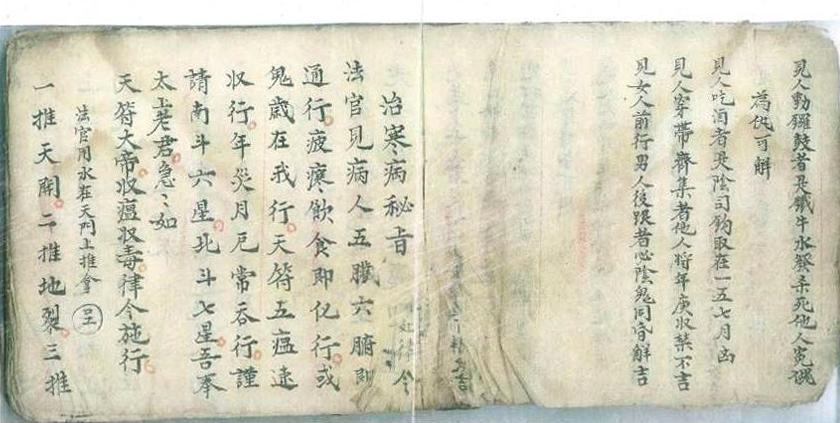 見人動鑼鼓者是鐵牛水發杀死他人寃魂
為仇可解
見人吃酒者是陰司鈎取在一五七月凶
見人穿帶齊集者他人將年庚収禁不吉
見女人前行男人後跟者必陰鬼同昏解吉
治寒病秘旨
法官見病人五臟六腑即
通行疲寒飲食即化行或
鬼歲在我行天符五瘟速
収行年災月厄常吞行謹
請南斗六星北斗七星吾奉
太上老君急〻如
天符大帝収瘟収毒律令施行
法官用水在天門上推拿
一推天開二推地裂三推